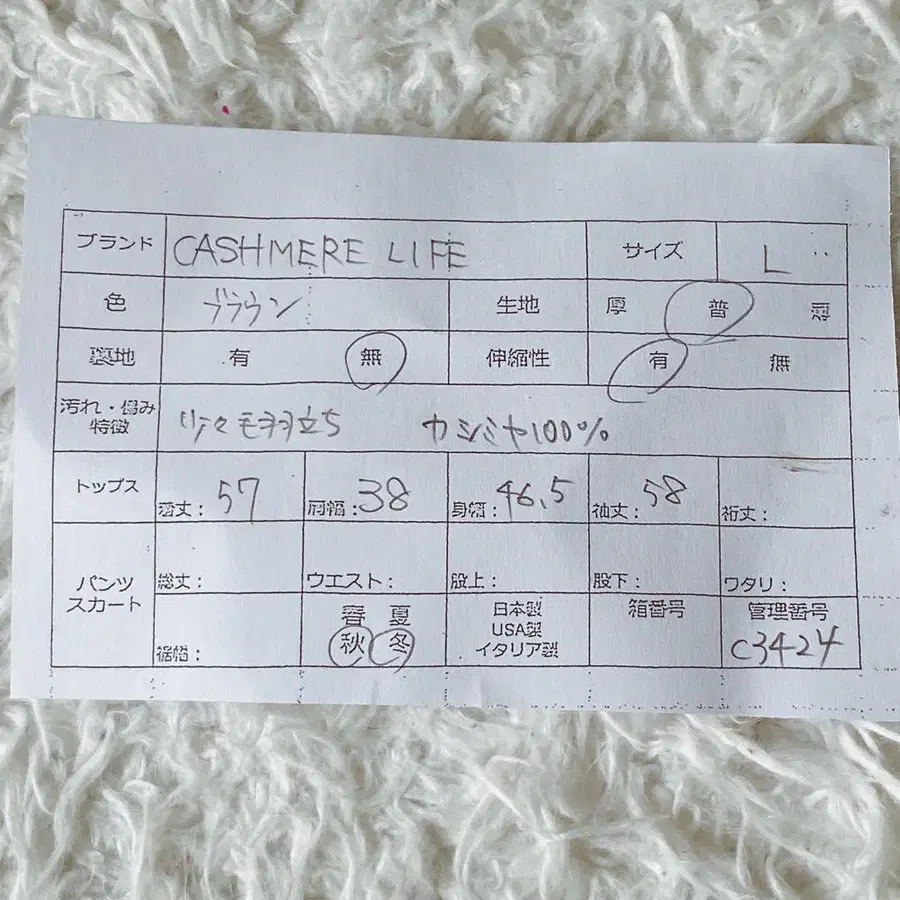 ブランド CASHMERE LIFE サイズ L
色 ブラウン 生地 厚 普 薄
裏地 有 無 伸縮性 有 無
汚れ・傷み
特徴 少々毛羽立ち カシミヤ100%
トップス 着丈: 57 肩幅: 38 身幅: 46.5 袖丈: 58 裄丈:
パンツ
スカート 総丈: ウエスト: 股上: 股下: ワタリ:
裾幅: 春 夏
秋 冬
日本製
USA製
イタリア製
箱番号
管理番号
C3424